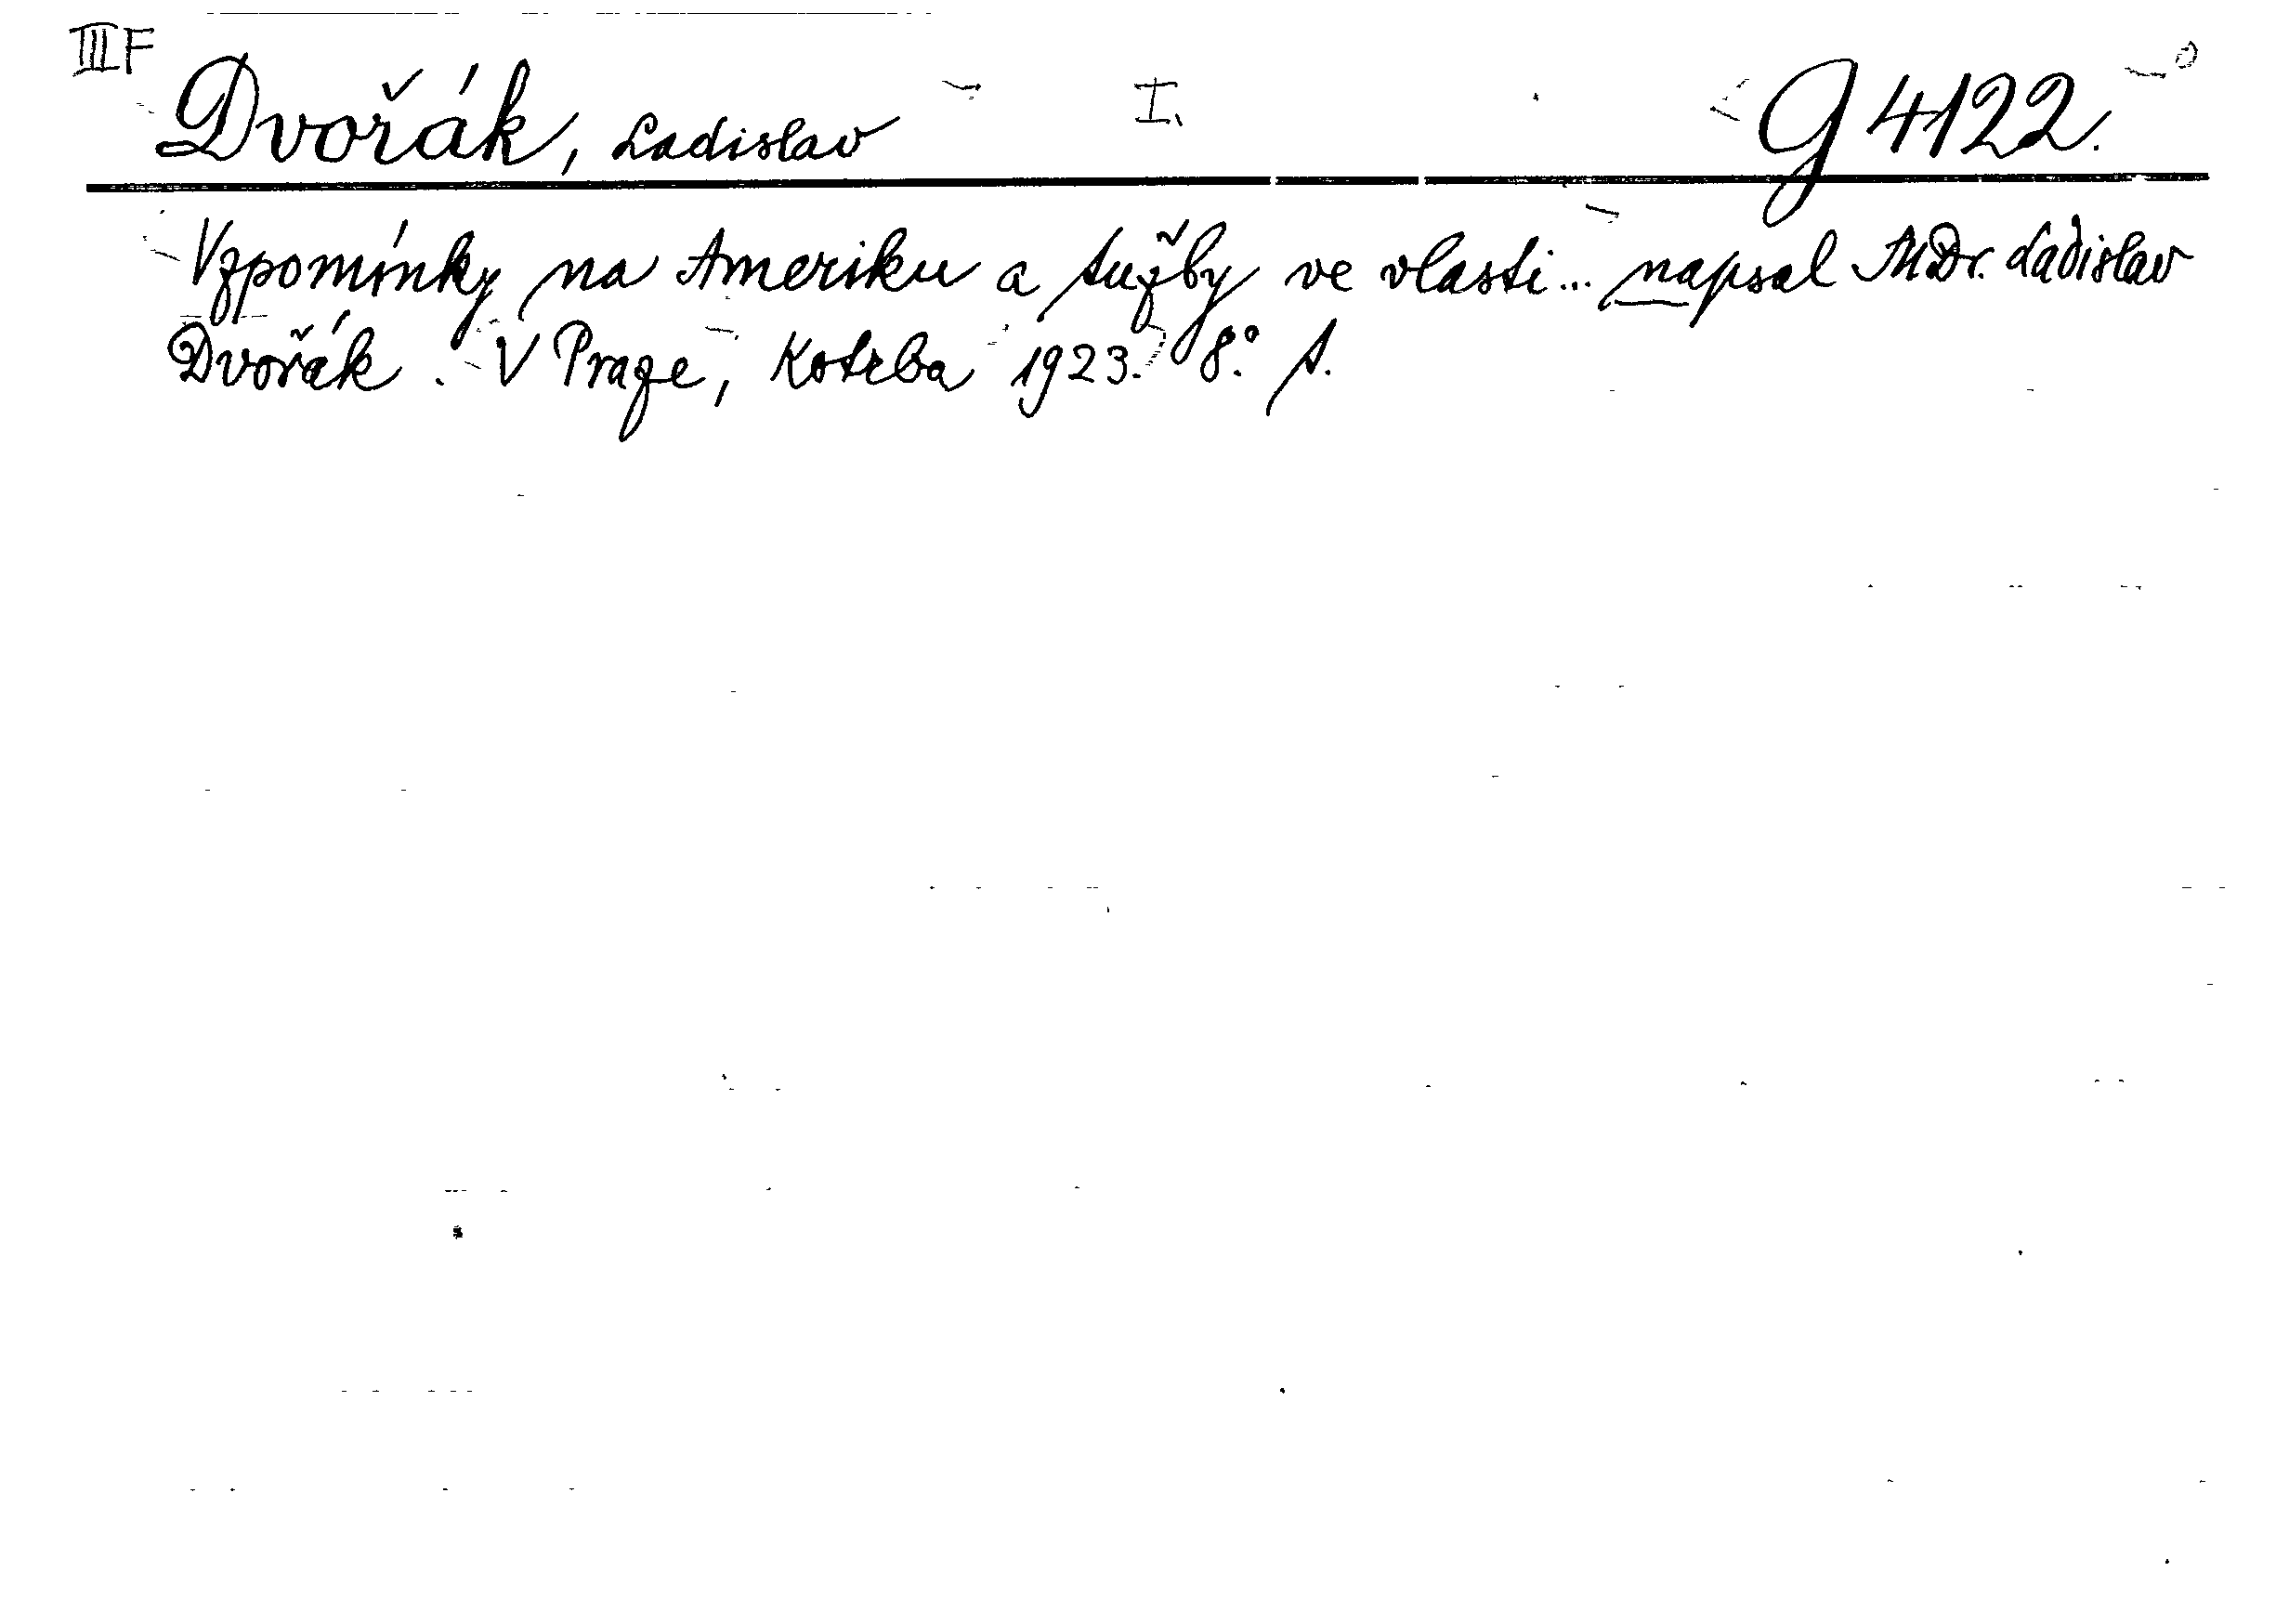 III F
Dvořák, Ladislav I. G 4122.
Vzpomínky na Ameriku a tužby ve vlasti... napsal MDr. Ladislav
Dvořák. V Praze, Kotrba 1923. 8.° s.